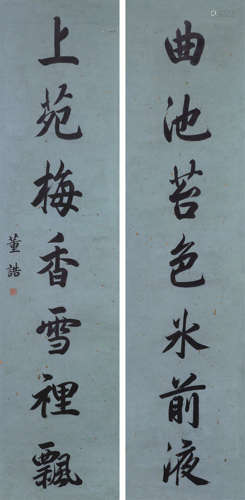 曲池苔色冰前液
上苑梅香雪裡飄
董誥